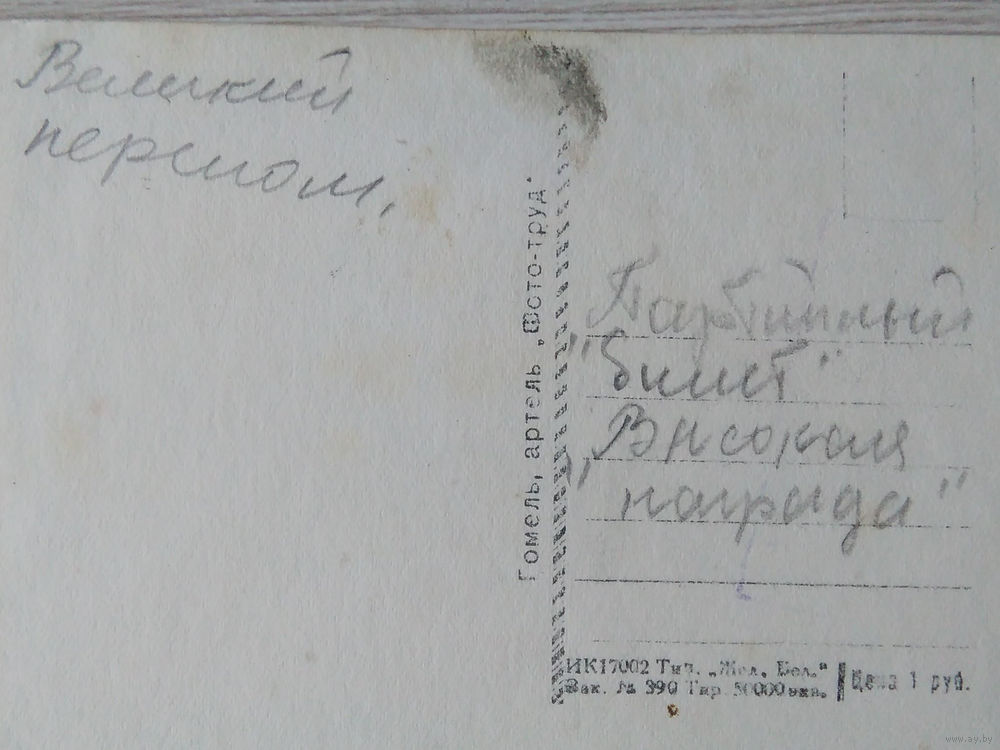 Великий
перелом.
Гомель, артель „Фото-труд"
Партийный
"билет"
Высокая
"награда"
ИК17002 Тип. „Жел. Бел."
Зак. № 390 Тир. 50000 экз.
Цена 1 руб.
www.ay.by